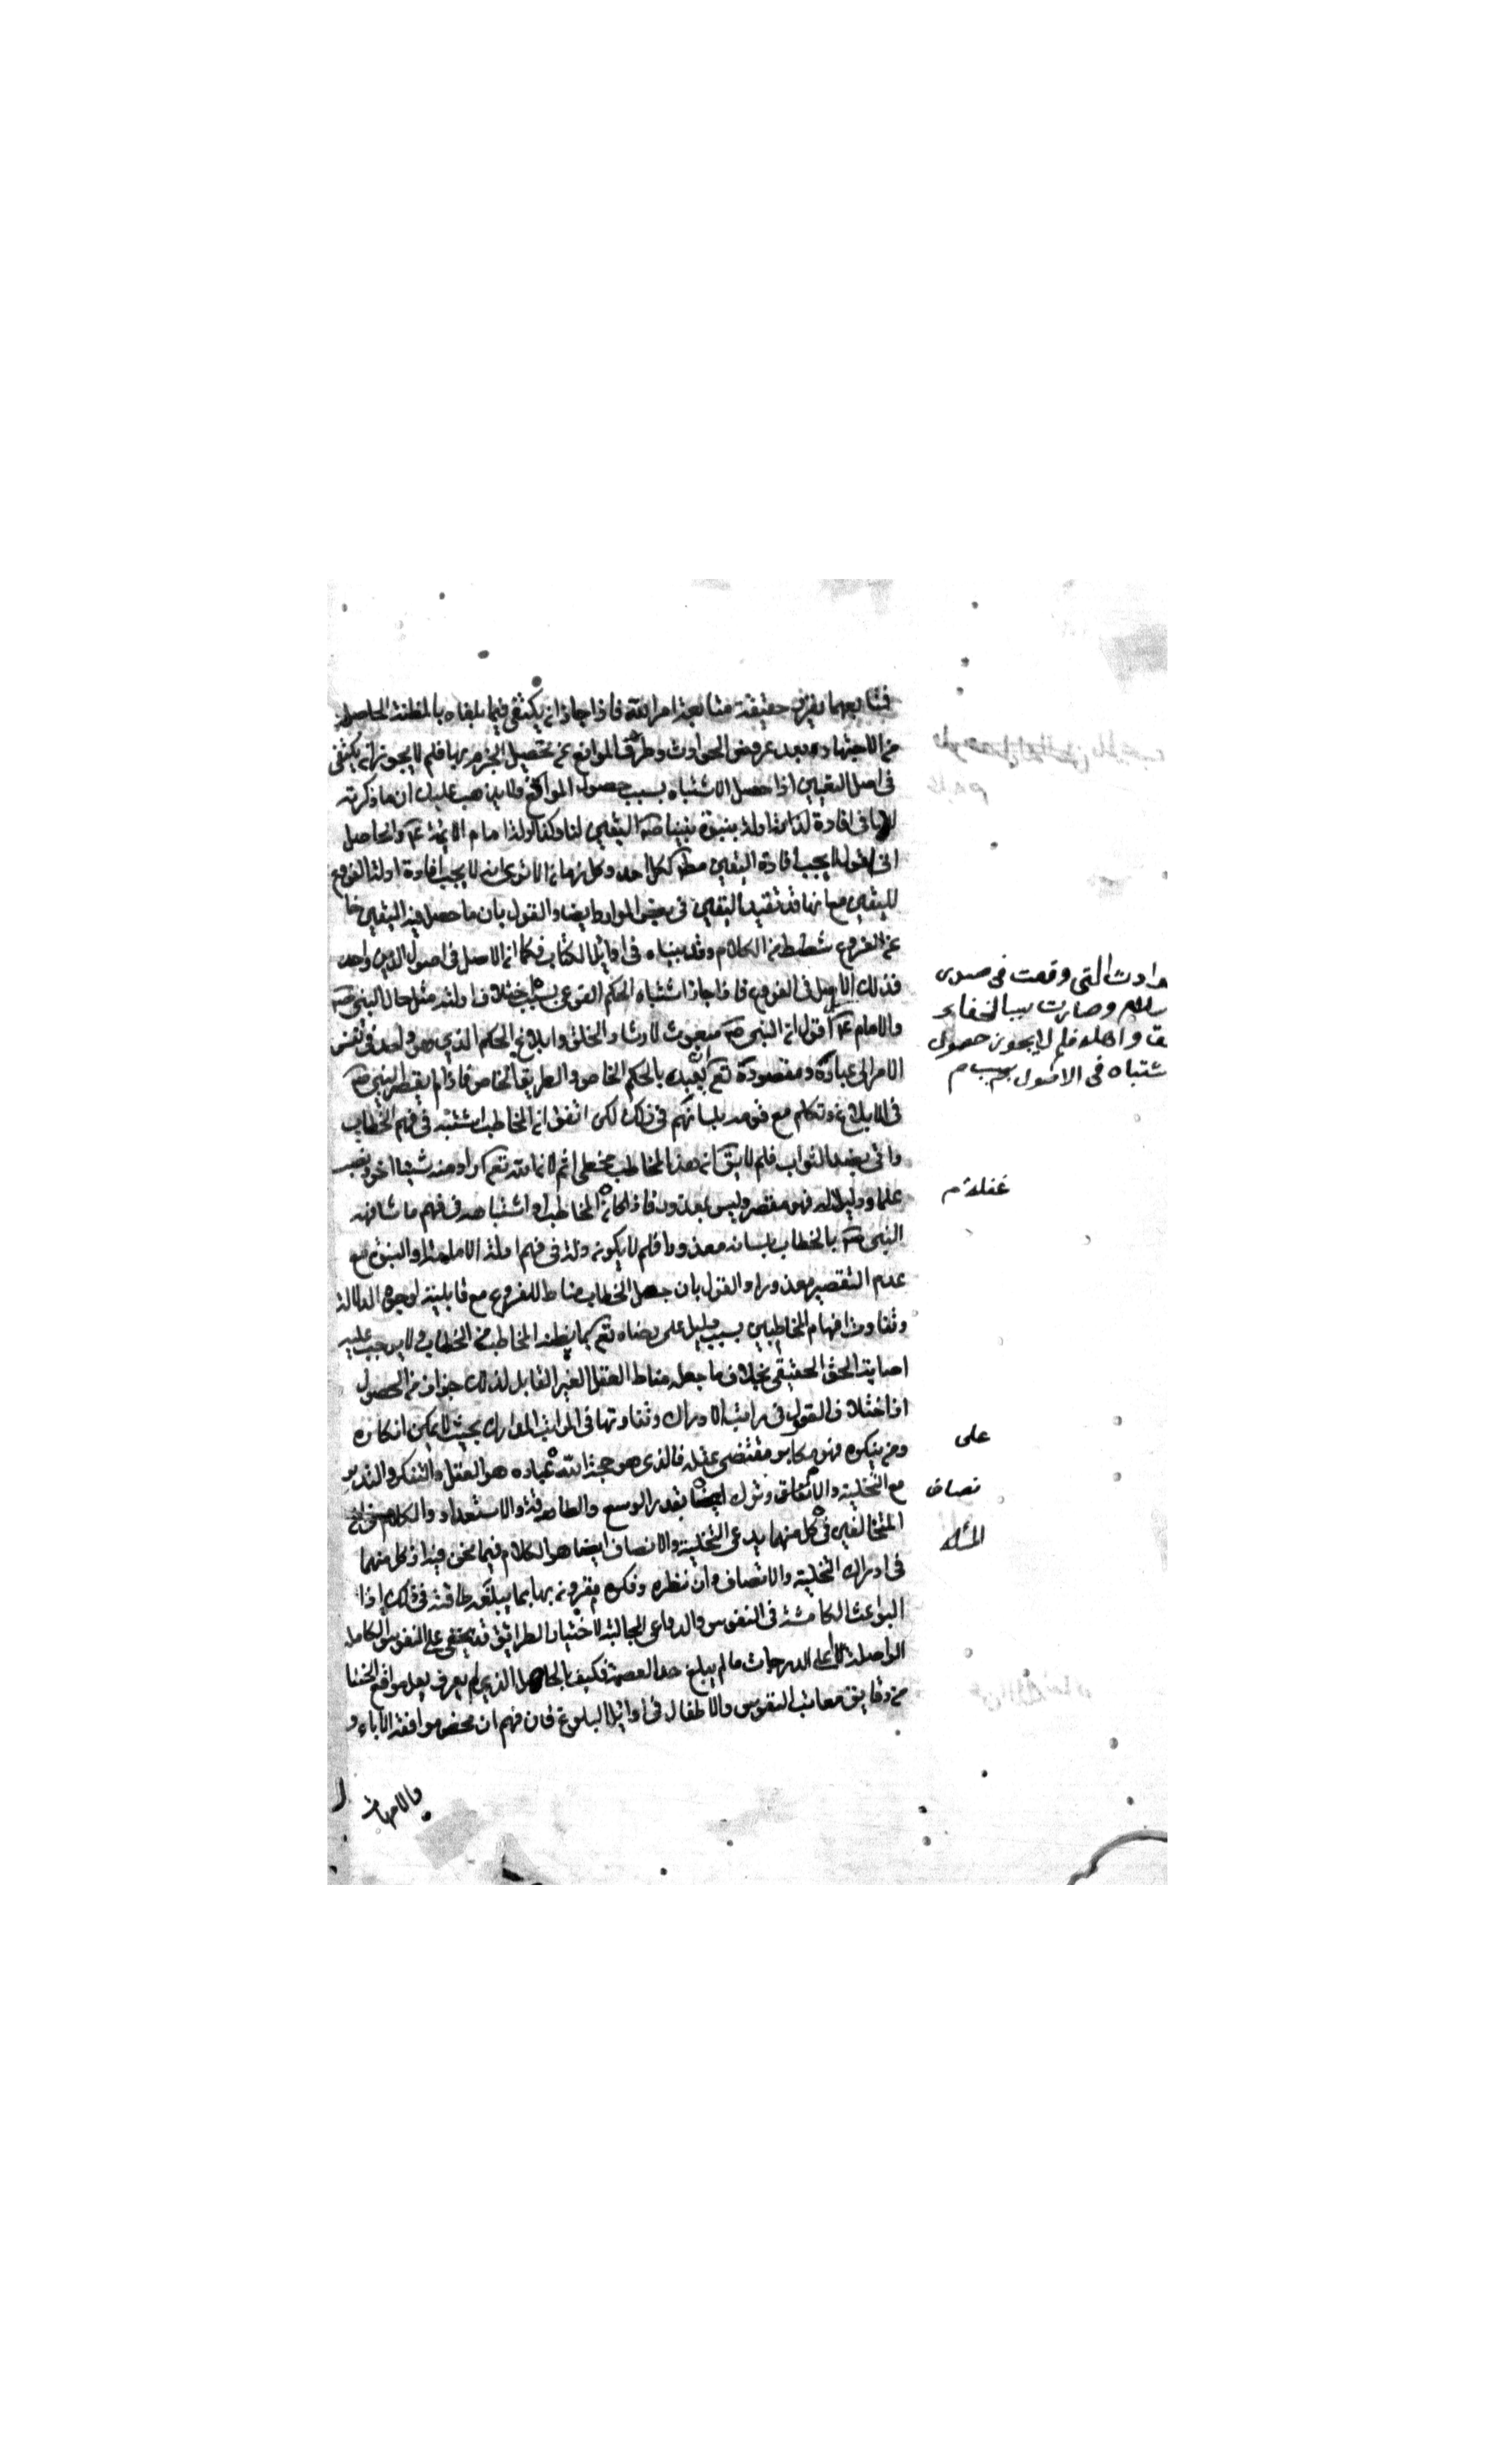 فمتابعهما يفرز حقيقة متابعة امر الله فاذا جاز ان يكتفي فيما بلغاه بالمظنة الحاصلة
من الاجتهاد بعد عروض الحوادث وطرق الموانع عن تحصيل الجزم بها فلم لا يجوز ان يكتفى
في اصل التعيين اذا حصل الاشتباه بسبب حصول الموانع ولا يذهب عليك ان ما ذكرته
لا ينافي افادة ادلة نبوة نبينا ص اليقين لنا وكذا ادلة امام الائمة ع والحاصل
اني اقول لا يجب افادة اليقين مط لكل احد وكل زمان الا ترى انه لا يجب افادة ادلة الفروع
لليقين مع انها قد تفيد اليقين في بعض الموارد ايضا والقول بان ما حصل فيه اليقين خا
عن الفروع شطط من الكلام وقد بيناه في اوائل الكتاب فكما ان الاصل في اصول الدين واحد
فكذلك الاصل في الفروع فاذا جاز اشتباه الحكم الفرعي بسبب اختلاف ادلته مثل حال النبي ص
والامام ع اقول ان النبي ص مبعوث لارشاد الخلق وابلاغ الحكم الذي هو واحد في نفس
الامر الى عباده ومقصوده تع تعبده بالحكم الخاص والطريق الخاص فاذا لم يقصر النبي ص
في الابلاغ وتكلم مع قومه بلسانهم في ذلك لكن اتفق ان المخاطب اشتبه في فهم الخطاب
علما ودليلا له فهو مقصر وليس بمعذور فاذا كان المخاطب واشتباهه في فهم ما شافهه
النبي ص بالخطاب بلسانه معذورا فلم لا يكون وله في فهم ادلة الامامة او النبوة مع
عدم التقصير معذورا والقول بان جعل الخطاب مناطا للفروع مع قابليته لوجوه الدلالة
وتفاوت افهام المخاطبين بسببه دليل على رضاه تع بما يظنه المخاطب من الخطاب ولا يوجب عليه
اصابة الحق الحقيقي بخلاف ما جعله مناط العقل الغير القابل لذلك جزاف من الحصول
اذ اختلاف العقول في مراتب الادراك وتفاوتها في المواد بحيث لا يمكن انكاره
ومن ينكره فهو مكابر مقتضى عقله فالذي هو حجة الله عباده هو العقل والتفكر والتدبر
مع التخلية والانصاف وترك بقدر الوسع والطاقة والاستعداد والكلام في ان
المتخالفين في كل منهما يدعى التخلية والانصاف ايضا هو الكلام فيما نحن فيه اذ كل منهما
في ادراك التخلية والانصاف وان نظره وفكره مقرون بها بما يبلغه طاقته في ذلك اذا
البواعث الكامنة في النفوس والدواعي الجالبة لاختيار الطرائق قد يخفى على النفوس الكاملة
الواصلة لاعلى الدرجات ما لم يبلغ حد العصمة فكيف بالجاهل الذي لم يعرف بعد مواقع الخفا
من دقايق معائب النفوس والاطفال في اوائل البلوغ فان فهم ان محض موافقة الآباء و
والامهات
وادث التي وقعت في صدر
سلام وصارت سببا لخفاء
ق واهله فلم لا يجوز حصول
شتباه في الاصول بسبب م
غفلة م
على
نصاف
المسئلة